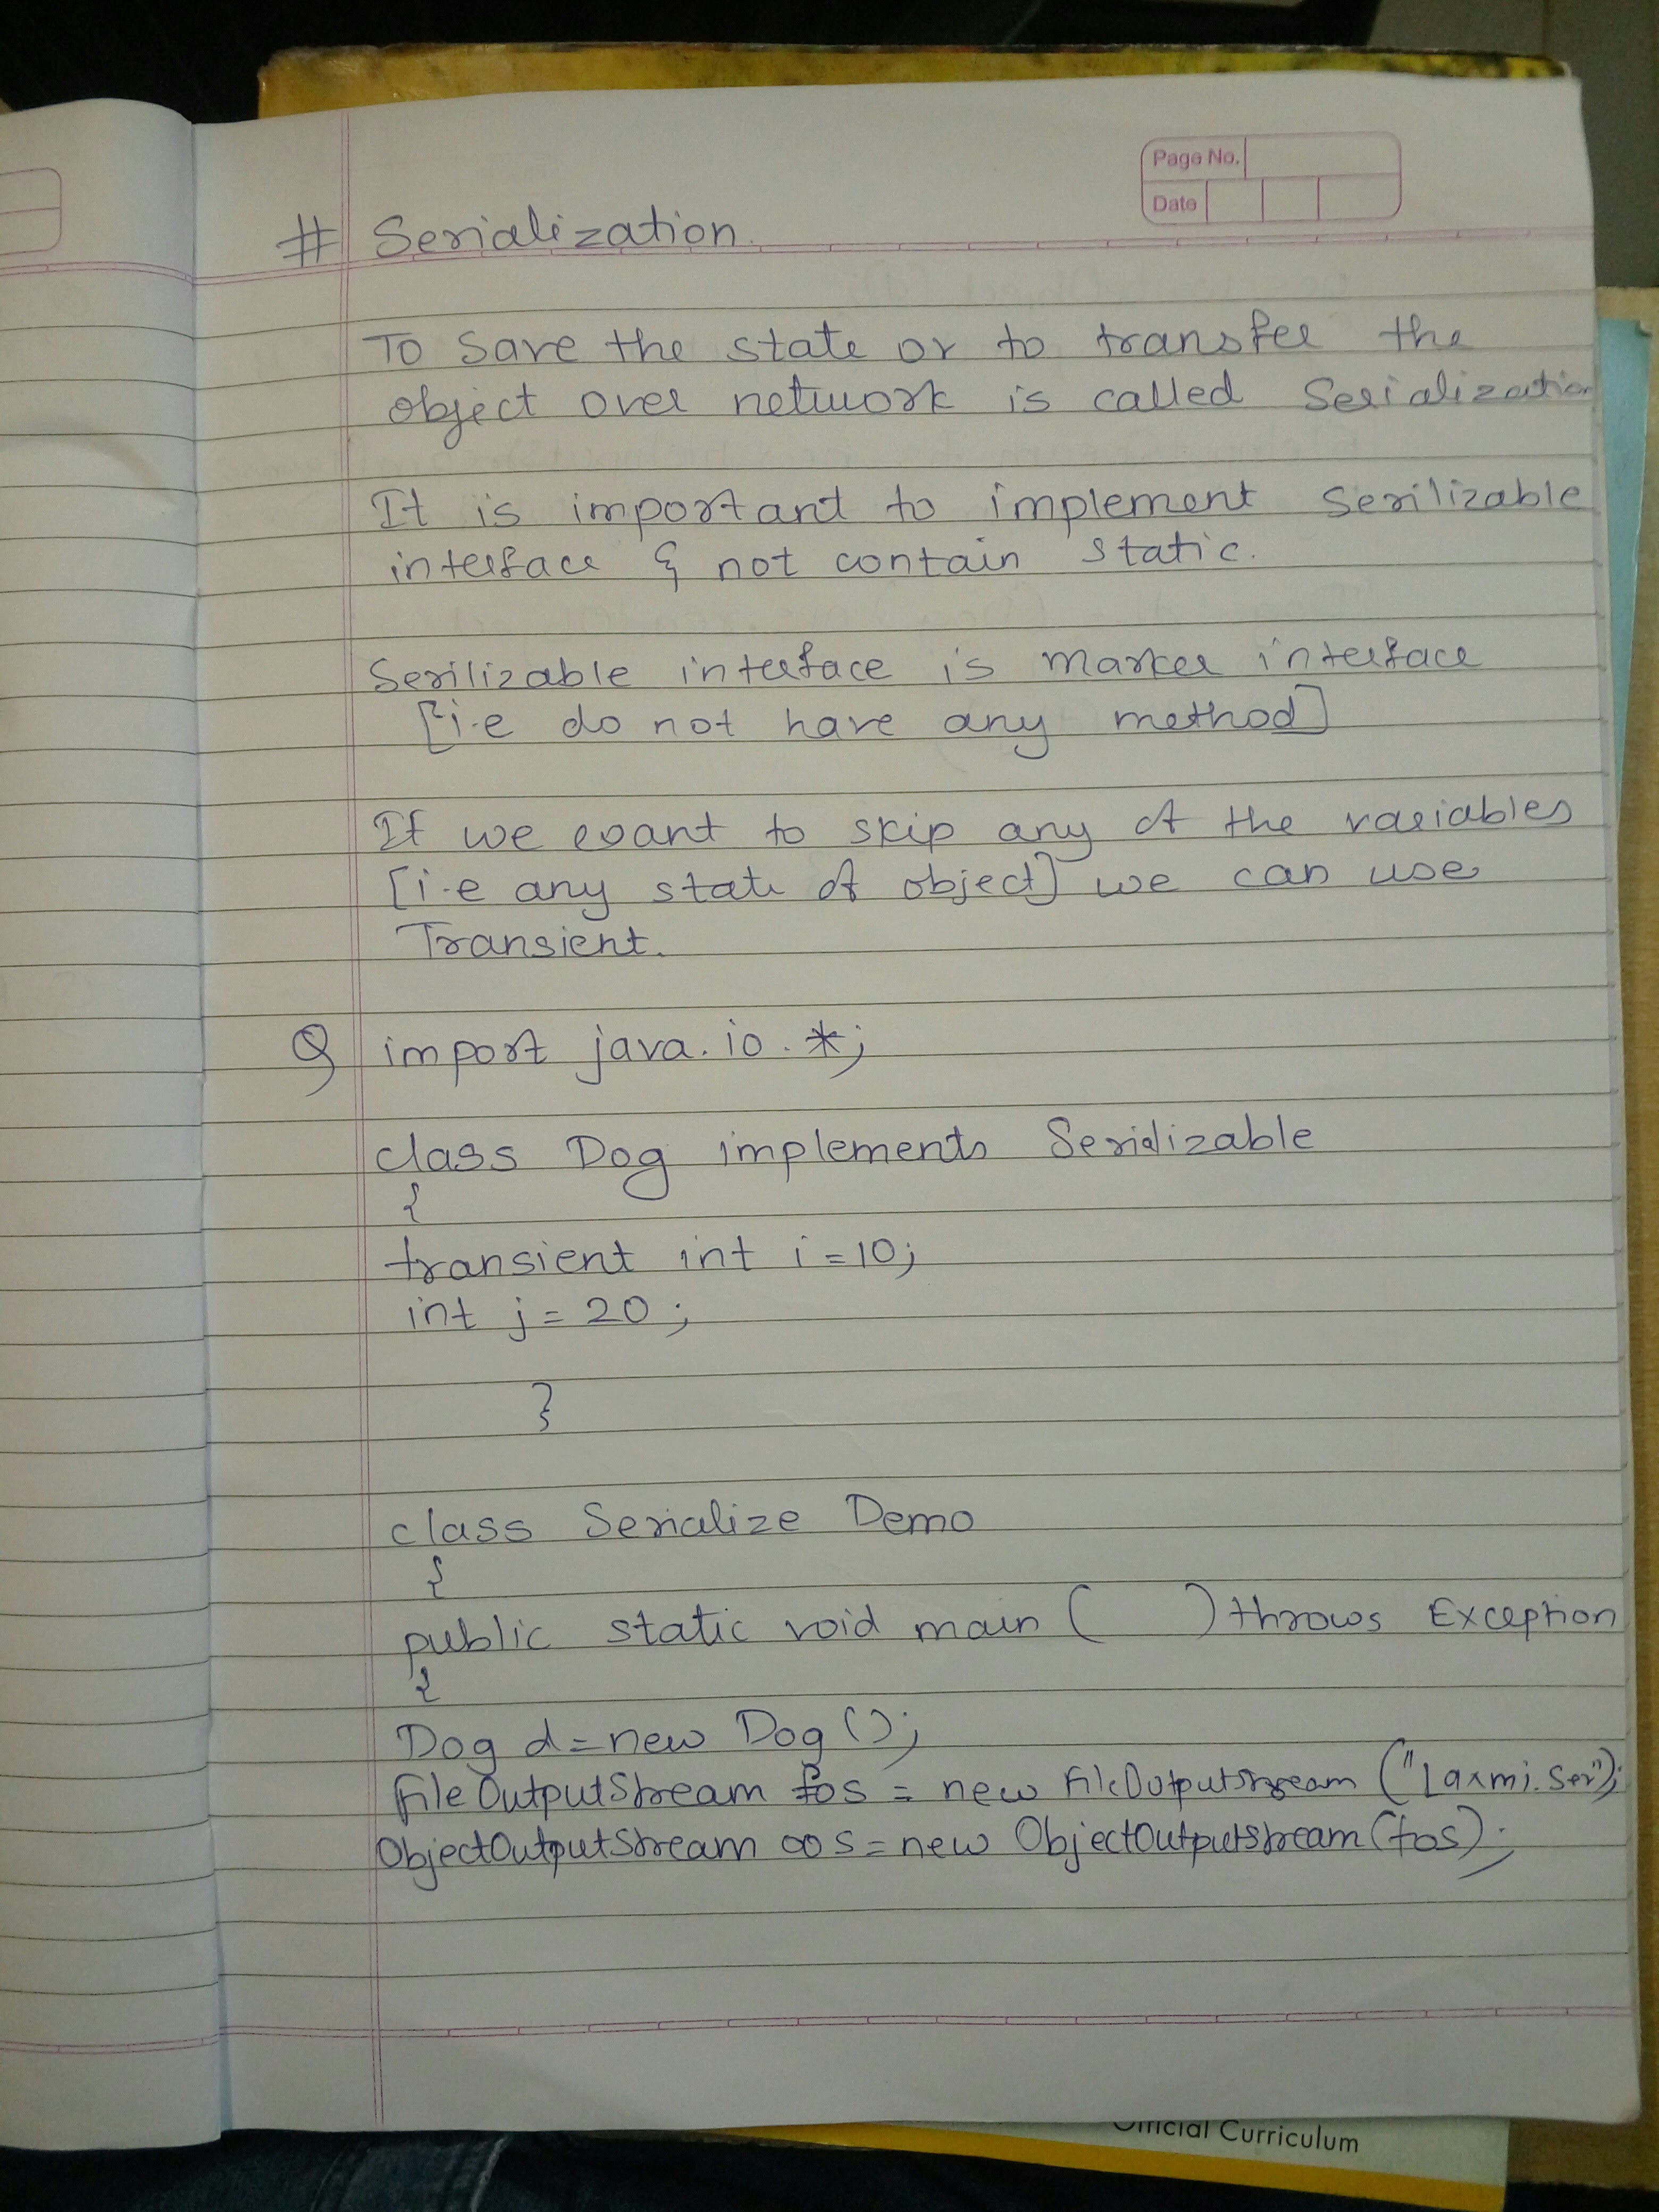 Page No.
Date
# Serialization.
To Save the state or to transfer the
object over network is called Serialization
It is important to implement Serilizable
interface & not contain static.
Serilizable interface is marker interface
[i.e do not have any method]
If we want to skip any of the variables
[i.e any state of object] we can use
Transient.
Q import java.io.*;
class Dog implements Serializable
{
transient int i=10;
int j=20;
}
class Serialize Demo
{
public static void main ( ) throws Exception
{
Dog d=new Dog();
FileOutputStream fos = new FileOutputStream ("Laxmi.Ser");
ObjectOutputStream oos=new ObjectOutputStream(fos);
Official Curriculum